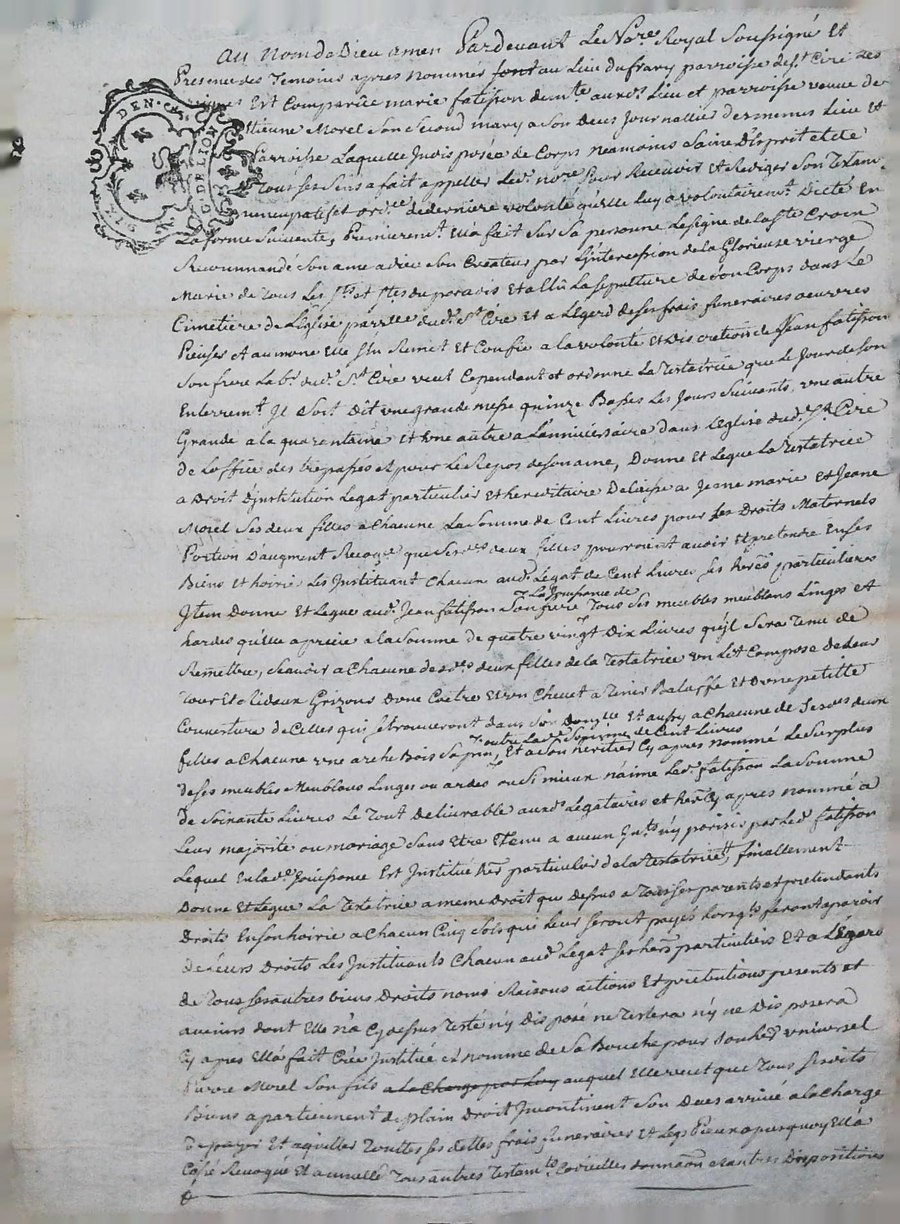 Au nom de Dieu amen Pardevant Le No.re Royal Soussigné Et
Presence des Temoins apres nommés font au Lieu du frary parroisse de St Cire Les
Vignes Est Comparûe marie fatisson dem.te aux d. Lieu et parroisse veuve de
Etienne Morel Son Second mary a Son Deces Journallier desmemes Lieu et
Parroisse Laquelle Indisposée de Corps neamoins Saine D'Esprit et de
Tous Ses Sens a fait appeller Led. nore Pour Recevoir et Rediger Son Testam.
nuncupatif et ord.ce de derniere volonté quelle luy a volontairem.t Dicté En
La forme Suivante, Premierem.t Ella fait Sur Sa personne Le Signe de la S.te Croix
Recommandé Son ame a dieu Son Createur par L'intercession de la Glorieuse vierge
Marie de Tous Les S.ts et S.tes du paradis Et a Elû La Sepulture de Son Corps dans Le
Cimetiere de L'Eglise parr.lle dud. St Cire Et a L'Egard de Ses frais funeraires oeuvres
Pieuses Et aumone Elle S'En Remet Et Confie a la volonté Et Discretion de Jean fatisson
Son frere Lab. dud. St Cire veut Cependant et ordonne La Testatrice que Le Jour de Son
Enterrem.t Il Soit Dit une grande messe quinze Basses Les Jours Suivants, une autre
Grande a la quarantaine et Une autre a L'anniversaire dans L'Eglise dud. St Cire
de L'office des trepassés et pour Le Repos de Son ame, Donne Et Legue La Testatrice
a Droit d'Institution Legat particulier Et hereditaire Delaisse a Jeane marie et Jeane
Morel Ses deux filles a Chacune La Somme de Cent Livres pour Les Droits Maternels
Portion D'augment que Ses d.es deux filles pourroient avoir Et pretendre En Ses
Biens et hoirie Les Instituant Chacune aud. Legat de Cent Livres Ses heres particulieres
Item Donne et Legue aud. Jean fatisson Son frere La Jouissance de Tous Ses meubles meublans Linges et
hardes quelle aprecie a la Somme de quatre vingt Dix Livres qu'il Sera Tenu de
Remettre, Scavoir a Chacune des d.es deux filles de la Testatrice un Lit Composé de Leur
Tour Et Rideaux Grizons Done Coitre Et Un Chevet a Tenir Baluffe Et Done petitte
Couverture de Celles qui Se trouveront dans Son Et aussy a Chacune de Ses d.es deux
filles a Chacune une arche Bois Sapin, outre Lad.e Somme de Cent Livres Et a Son heritier Cy apres nommé Le Surplus
de Ses meubles Meublans Linges ou ardes ou Si mieux n'aime Led. fatisson La Somme
De Soixante Livres Le Tout Delivrable aux d. Legataires et her.er Cy apres nommé a
Leur majorité ou mariage Sans Etre Tenu a aucun ny par Led. fatisson
Lequel En lad.e Jouissance Est Institué her. particulier de la Testatrice, finallement
Donne Et Legue La Testatrice a meme Droit que dessus a Tous Ses parents et pretendants
Droits En Son hoirie a Chacun Cinq Sols qui Leur Seront payés Lorsq.ls feront aparoir
de Leurs Droits Les Instituants Chacun aud. Legat Ses her.s particuliers Et a L'Egard
de Tous Ses autres biens Droits noms Raisons actions Et pretentions presents et
avenirs dont Elle n'a Cy dessus Testé n'y Disposé ne Testera n'y ne Disposera
Cy apres Ella fait Crée Institué et nommé de Sa Bouche pour Son her. universel
Pierre Morel Son fils a La Charge par Luy auquel Elle veut que Tous Ses dits
Biens apartiennent de plain Droit Incontinent Son Deces arrivé a la Charge
De payer Et aquitter Touttes Ses dettes frais funeraires Et Legs Pieux a quoy Ella
Cassé Revoqué Et annullé Tous autres Testam.ts Codicilles donnaõn et autres Dispositions